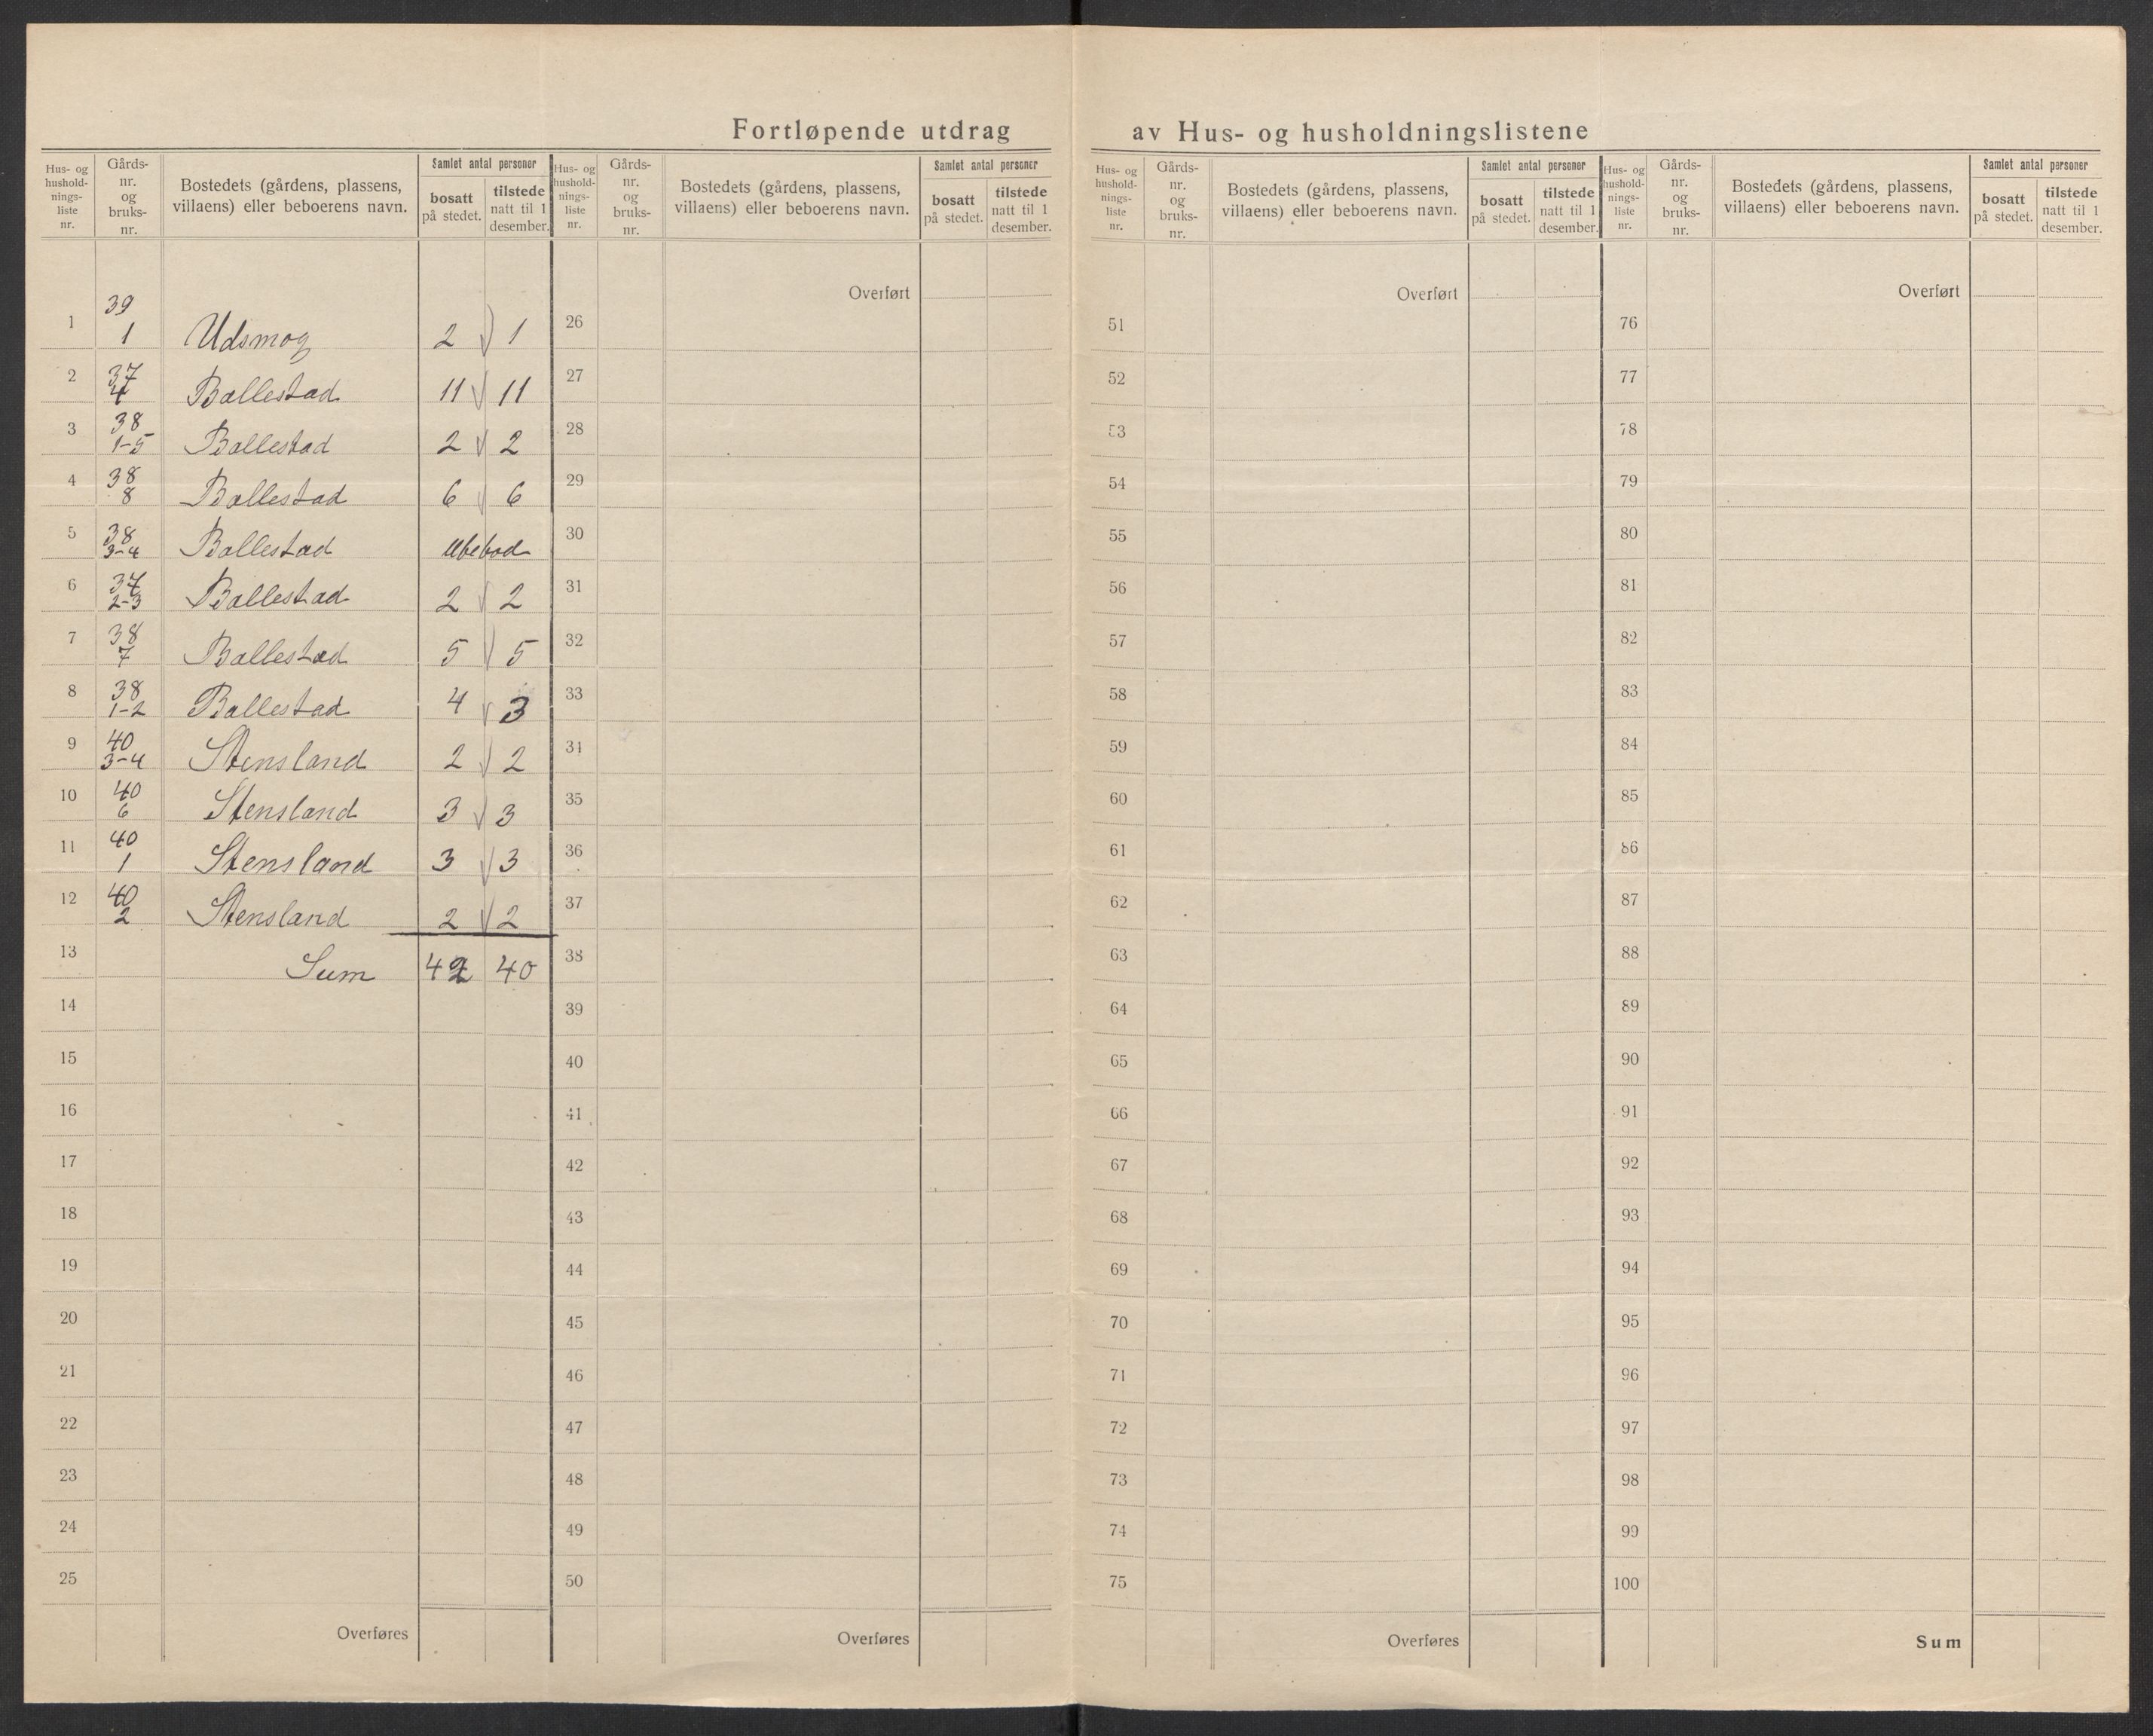 Fortløpende utdrag av Hus- og husholdningslistene
Hus- og hushold-nings-liste nr. Gårds-nr. og bruks-nr. Bostedets (gårdens, plassens, villaens) eller beboerens navn. Samlet antal personer bosatt på stedet. tilstede natt til 1 desember.
1 39 1 Udsmog 2 1
2 37 4 Ballestad 11 11
3 38 1-5 Ballestad 2 2
4 38 8 Ballestad 6 6
5 38 3-4 Ballestad Ubebod
6 37 2-3 Ballestad 2 2
7 38 7 Ballestad 5 5
8 38 1-2 Ballestad 4 3
9 40 3-4 Stensland 2 2
10 40 6 Stensland 3 3
11 40 1 Stensland 3 3
12 40 2 Stensland 2 2
13 Sum 42 40
14
15
16
17
18
19
20
21
22
23
24
25
Overføres
Hus- og hushold-nings-liste nr. Gårds-nr. og bruks-nr. Bostedets (gårdens, plassens, villaens) eller beboerens navn. Samlet antal personer bosatt på stedet. tilstede natt til 1 desember.
Overført
26
27
28
29
30
31
32
33
31
35
36
37
38
39
40
41
42
43
44
45
46
47
48
49
50
Overføres
Hus- og hushold-nings-liste nr. Gårds-nr. og bruks-nr. Bostedets (gårdens, plassens, villaens) eller beboerens navn. Samlet antal personer bosatt på stedet. tilstede natt til 1 desember.
Overført
51
52
53
54
55
56
57
58
59
60
61
62
63
64
65
66
67
68
69
70
71
72
73
74
75
Overføres
Hus- og hushold-nings-liste nr. Gårds-nr. og bruks-nr. Bostedets (gårdens, plassens, villaens) eller beboerens navn. Samlet antal personer bosatt på stedet. tilstede natt til 1 desember.
Overført
76
77
78
79
80
81
82
83
84
85
86
87
88
89
90
91
92
93
94
95
96
97
98
99
100
Sum